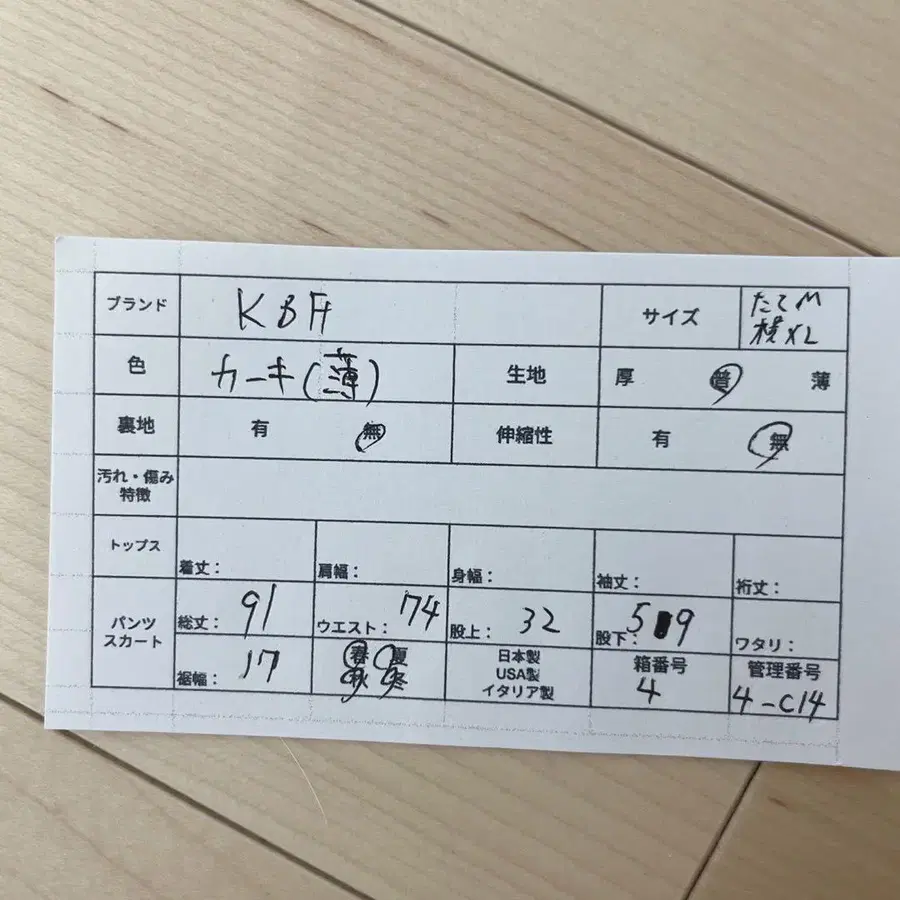 ブランド KBF サイズ たてM
横XL
色 カーキ(薄) 生地 厚 普 薄
裏地 有 無 伸縮性 有 無
汚れ・傷み
特徴
トップス 着丈: 肩幅: 身幅: 袖丈: 裄丈:
パンツ
スカート 総丈: 91 ウエスト: 74 股上: 32 股下: 59 ワタリ:
裾幅: 17 春 夏
秋 冬
日本製
USA製
イタリア製
箱番号
4
管理番号
4-C14